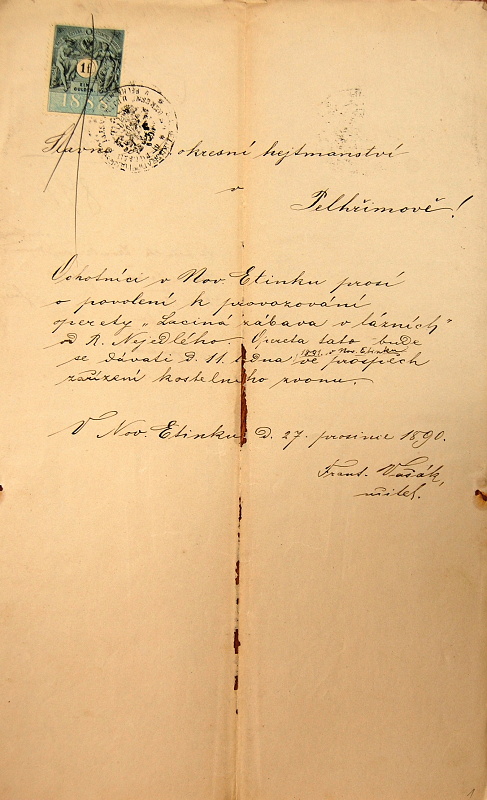 1 fl
EIN
GULDEN
1888
Slavné okresní hejtmanství
v
Pelhřimově!
Ochotníci v Nov. Etinku prosí
o povolení k provozování
operety „Laciná zábava v lázních"
od R. Nejedlého. Opereta tato bude
1891. v Nov. Etinku
se dávati d. 11. ledna ve prospěch
zařízení kostelního zvonu.
V Nov. Etinku d. 27. prosince 1890.
Frant. Vašák,
učitel.
1